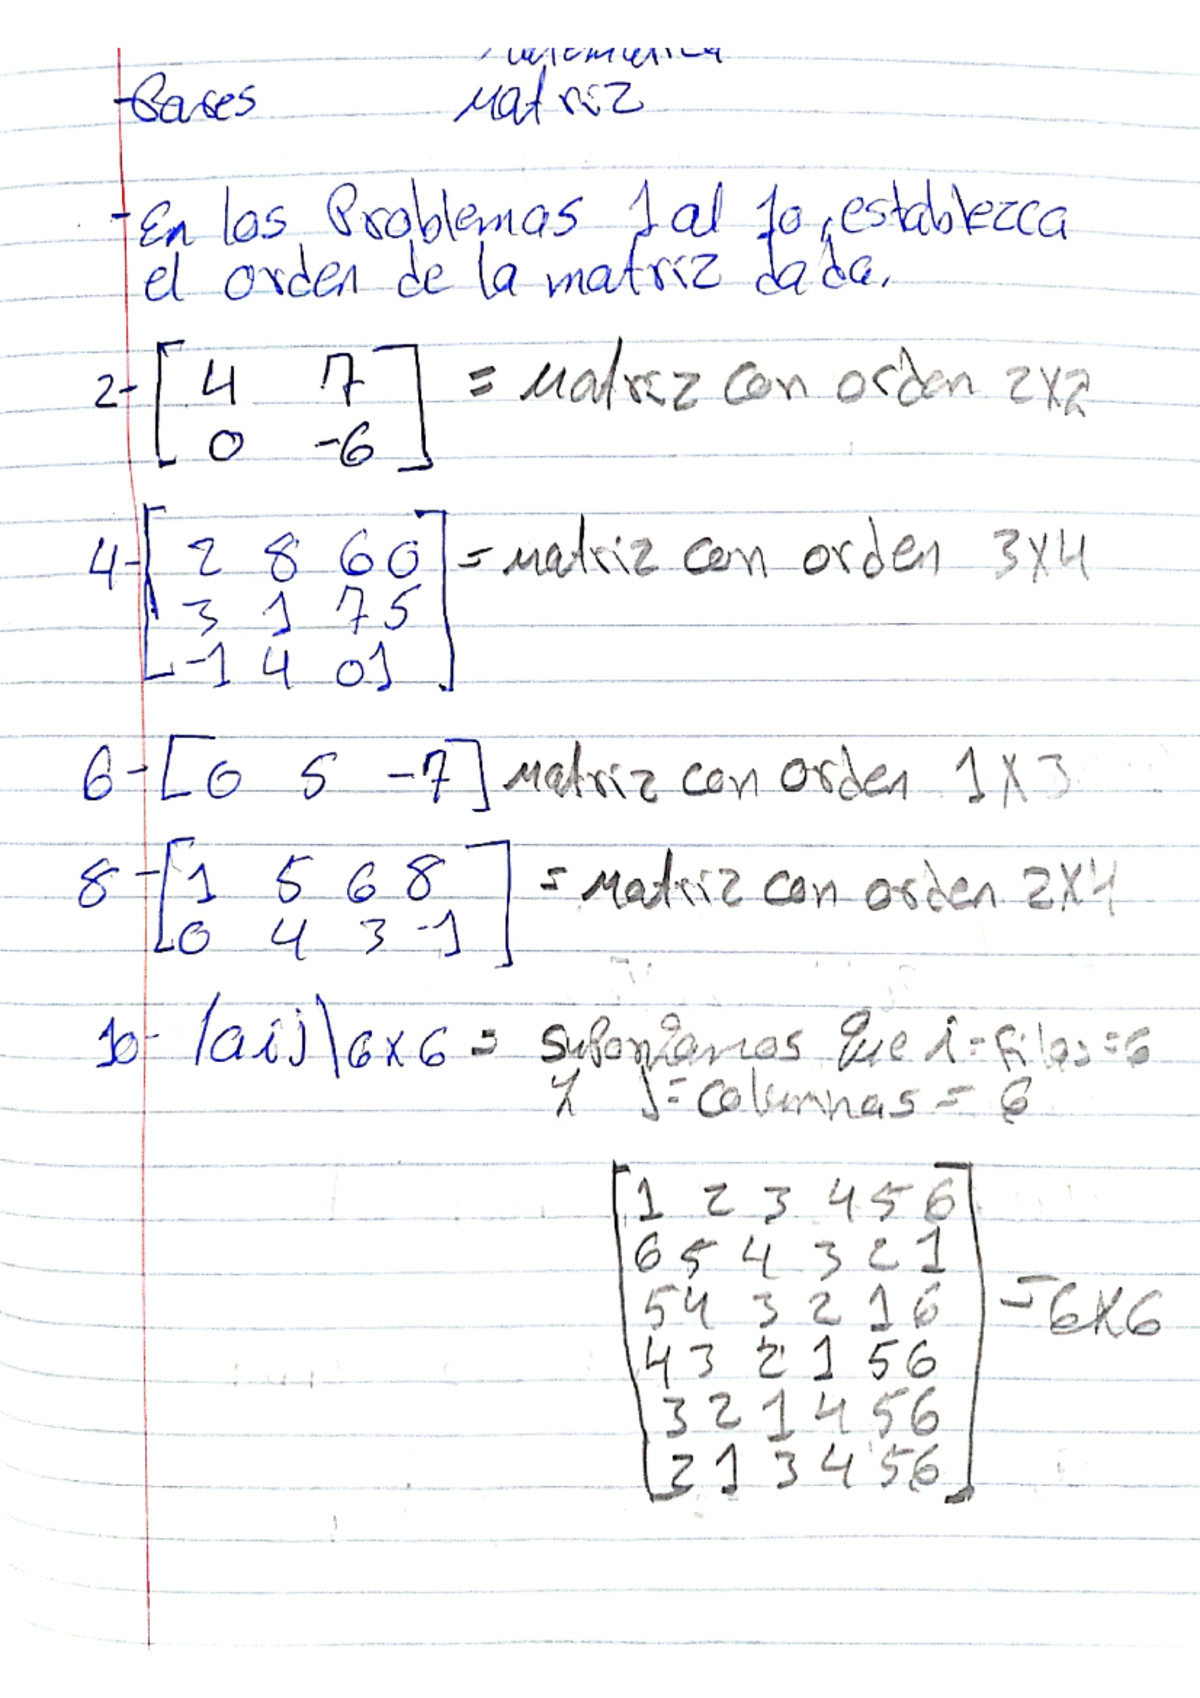 -Bases Matriz
-En los Problemas 1 al 10, establezca
el orden de la matriz dada.
2- [ 4 7 ] = Matriz con orden 2x2
0 -6
4- [ 2 8 6 0 ] = matriz con orden 3x4
3 1 7 5
-1 4 0 1
6- [ 0 5 -7 ] Matriz con orden 1x3
8- [ 1 5 6 8 ] = Matriz con orden 2x4
0 4 3 -1
10- (aij) 6x6 = supongamos que i = filas = 6
y j = columnas = 6
1 2 3 4 5 6
6 5 4 3 2 1
5 4 3 2 1 6 = 6x6
4 3 2 1 5 6
3 2 1 4 5 6
2 1 3 4 5 6